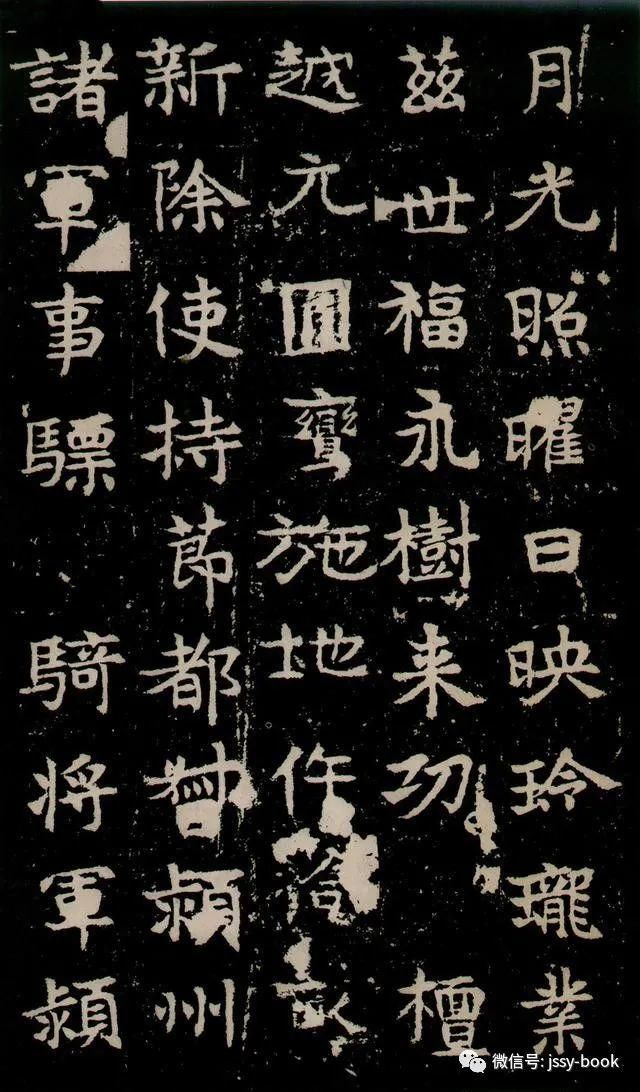 月光照曜日映玲瓏業
茲世福永樹来功檀
越元施地作
新除使持節都督潁州
諸軍事驃騎將軍潁
微信号: jssy-book